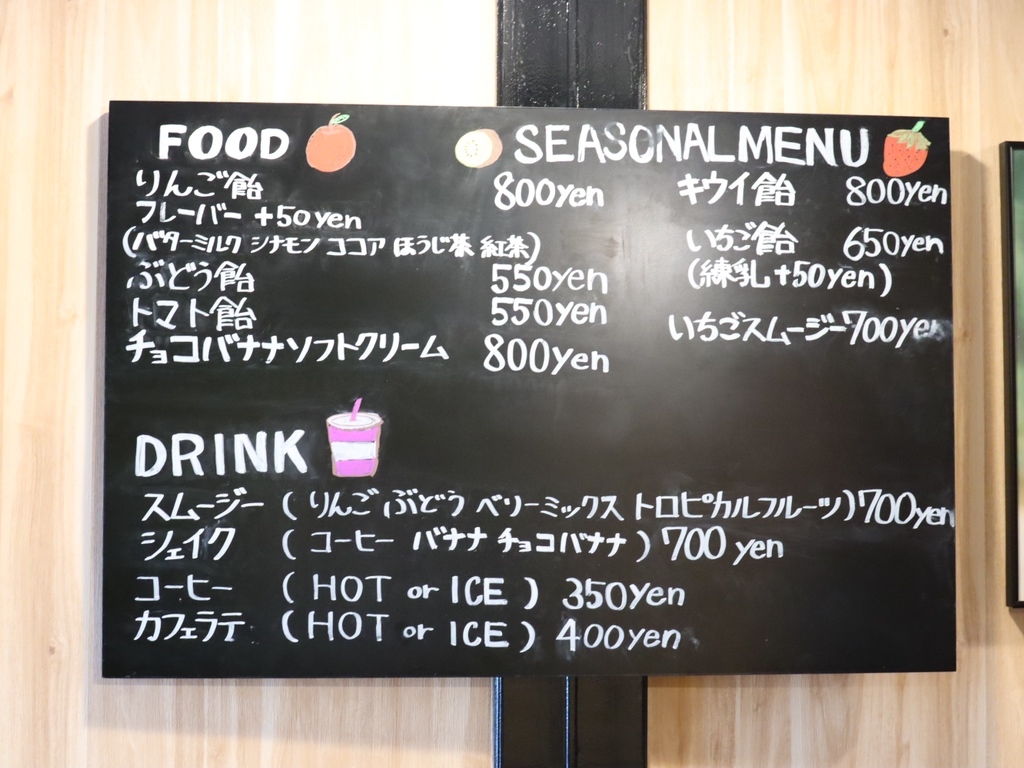 FOOD
りんご飴 800yen
フレーバー +50yen
(バターミルク シナモン ココア ほうじ茶 紅茶)
ぶどう飴 550yen
トマト飴 550yen
チョコバナナソフトクリーム 800yen
SEASONAL MENU
キウイ飴 800yen
いちご飴 650yen
(練乳+50yen)
いちごスムージー700yen
DRINK
スムージー (りんご ぶどう ベリーミックス トロピカルフルーツ)700yen
シェイク (コーヒー バナナ チョコバナナ) 700yen
コーヒー (HOT or ICE) 350yen
カフェラテ (HOT or ICE) 400yen